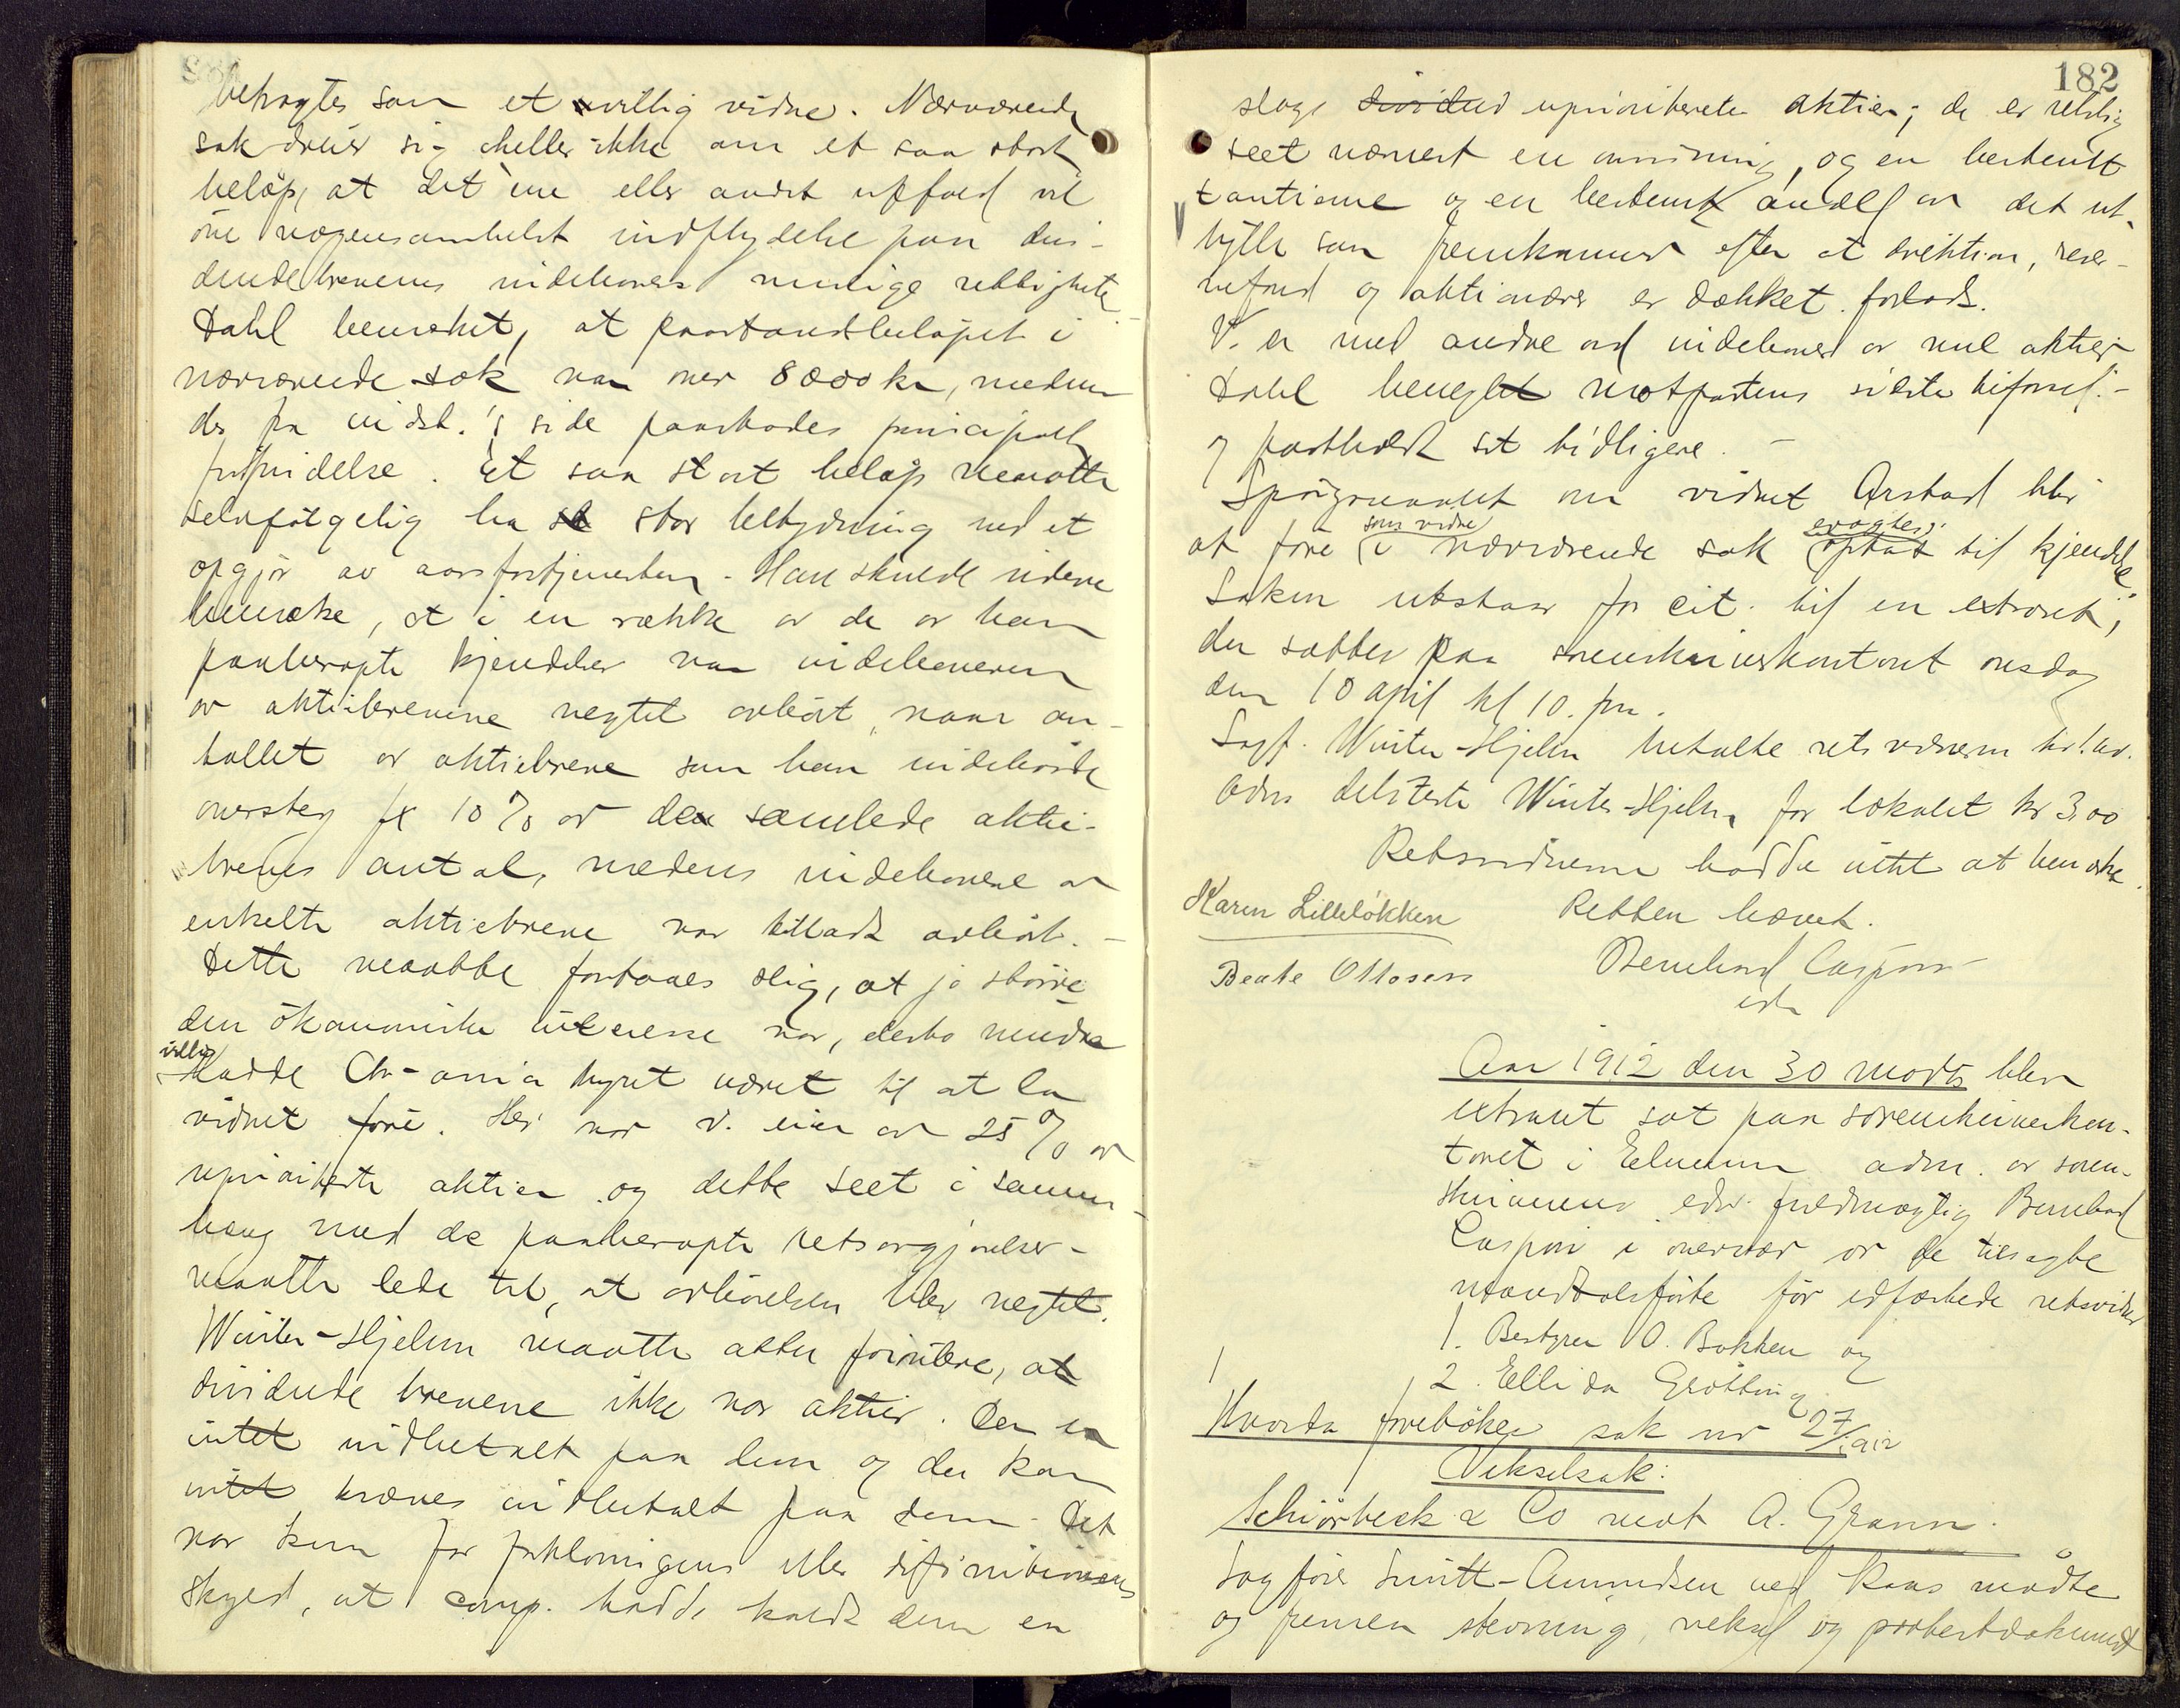 betragtes som et uvillig vidne. Nærværende
sak dreier sig heller ikke om et saa stort
beløp, at det ene eller andet utfald vil
øve nogensomhelst indflydelse paa divi-
dendebrevenes indehaveres mulige rettigheter.
Dahl bemerket, at paastandsbeløpet i
nærværende sak var over 8000 kr, medens
der fra indst.'s side paastodes principalt
frifindelse. Et saa stort beløp maatte
selvfølgelig ha stor betydning ved et
opgjør av aarsfortjenesten. Han skulde videre
bemerke, at i en række av de av ham
paaberopte kjendelser var indehaveren
av aktiebrevene negtet avhørt, naar an-
tallet av aktiebreve som han indehavde
oversteg fx 10 % av den samlede aktie-
brevs antal, medens indehavere av
enkelte aktiebreve var tillatt avhørt. -
Dette maatte forstaaes slig, at jo større
den økonomiske interesse var, desto mindre
villig
Hadde Chr-ania byret været til at la
vidnet føre. Her var v. eier av 25 % av
uprioriterte aktier og dette seet i sammen-
hæng med de paaberopte retsavgjørelser -
maatte lede til, at avhørelsen blev negtet.
Winter-Hjelm maatte atter pointere, at
dividende brevene ikke var aktier. Der er
intet indbetalt paa dem og der kan
intet kræves indbetalt paa dem. Det
var kun for forklaringens eller difinitionens
skyld, at comp. hadde kaldt dem en
182
slags divided uprioriterte aktier; de er retslig
seet nærmest en anvisning, og en bestemt
tantieme og en bestemt andel av det ut-
bytte som fremkommer efter at direktion, reser-
vefond og aktionærer er dækket forlods.
V. er med andre ord indehaver av nul aktier
Dahl benegtet motpartens sidste tilførsel. -
og fastholdt sit tidligere. -
Spørgsmaalet om vidnet Arstad blir
som vidne eragtes
at føre i nærværende sak optat til kjendelse
Saken utstaar for cit. til en extraret,
der sættes paa sorenskriverkontoret onsdag
den 10 april kl 10. fm.
Sagf. Winter-Hjelm betalte retsvidnerne
Odm delszeste Winter-Hjelm for lokalet kr 3,00
Retsvidnerne hadde intet at bemerke.
Karen Lilleløkken Retten hævet.
Beate Ottosen Bernhard Caspari
edsv
Aar 1912 den 30 marts blev
extraret sat paa sorenskriverkon-
toret i Elverum adm. av soren-
skriverens edsv. fuldmægtig Bernhard
Caspari i overvær av de tilsagte
mandtalsførte før edfæstede retsvidner
1. Bestyrer O. Bakken og
2. Ellida Grøtting
1
Hvorda foretökes sak nr 27/1912
Vekselsak:
Schiørbeck & Co mot A. Grann.
Sagfører Smitt-Amundsen ved Kaas mødte
og fremla stevning, veksel og protestdokument